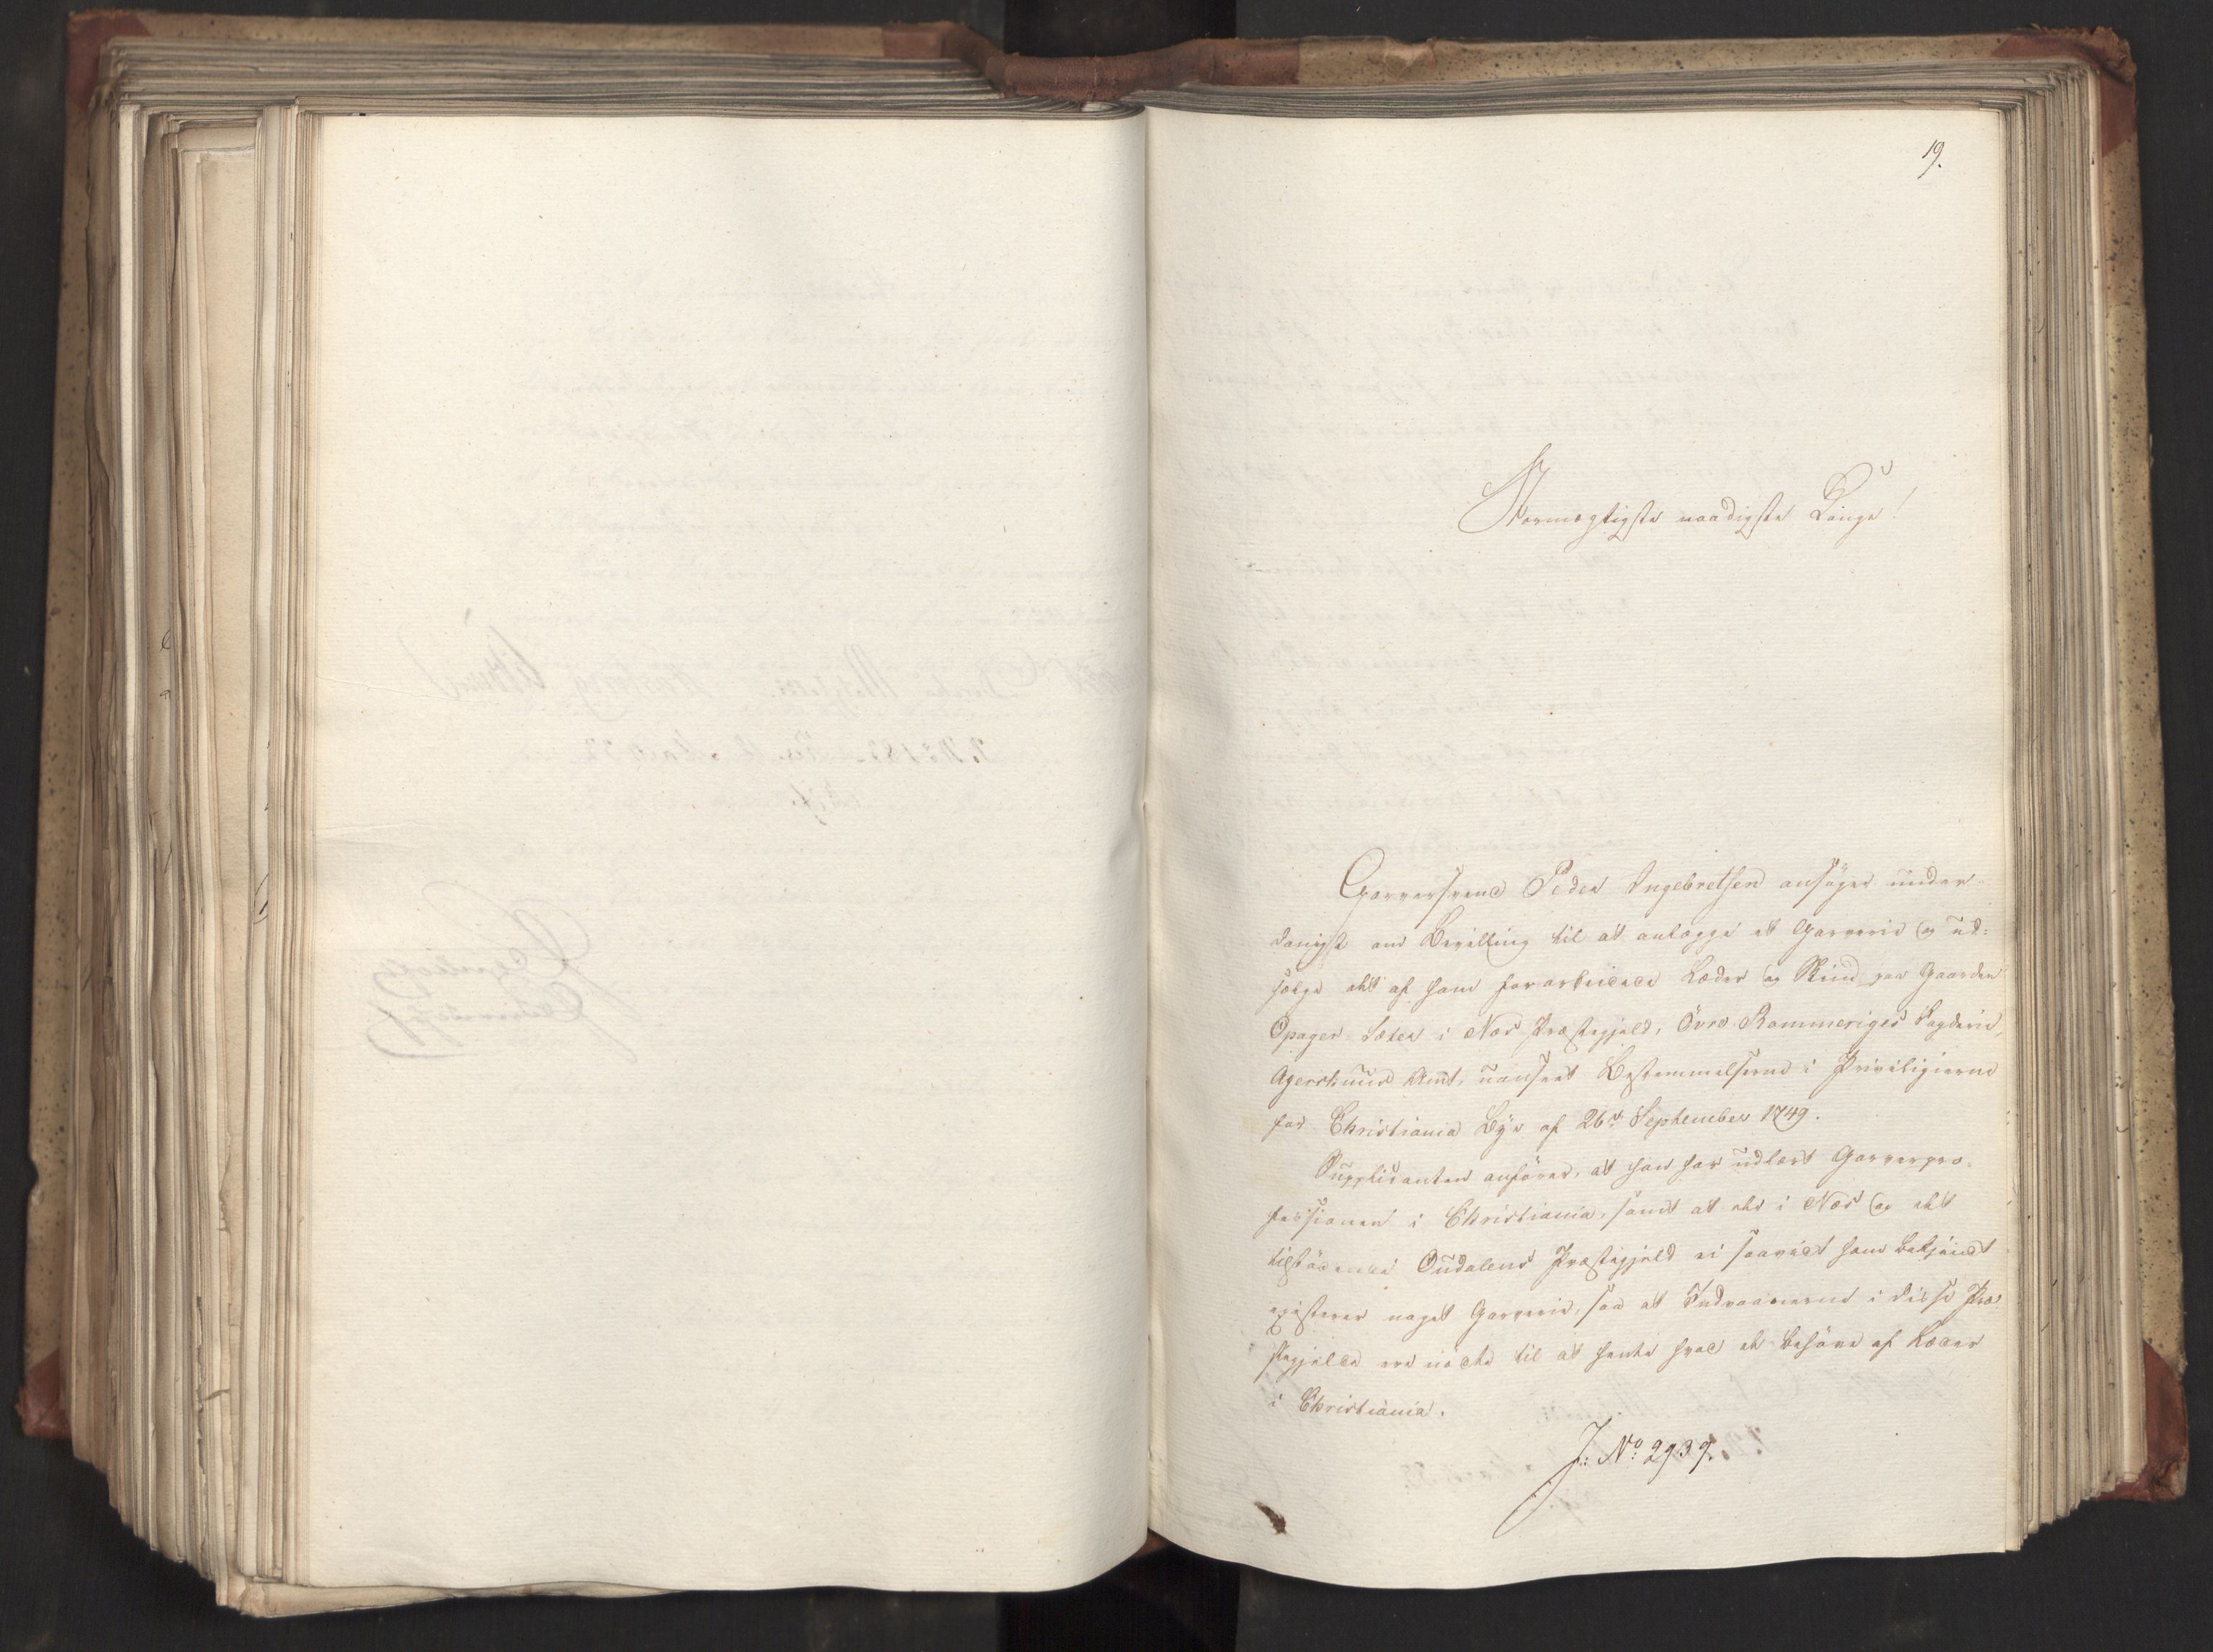 19.
Stormægtigste naadigste Konge!
Garversvend Peder Ingebretsen ansøger under-
danigst om Bevilling til at anlægge et Garverie og ud-
sælge det af ham forarbeidede Læder og Skind paa Gaarden
Opager Sæter i Næs Præstegjeld, Övre Rommeriges Fogderie,
Agershuus Amt, uanseet Bestemmelserne i Privilegierne
for Christiania Bye af 26de September 1749.
Supplicanten anfører, at han har udlært Garverpro-
fessionen i Christiania, samt at der i Næs og det
tilstødende Oudalens Præstegjeld ei saavidt ham bekjendt
existerer noget Garverie, saa at Indvaanerne i disse Præ-
stegjelde ere nødte til at hente hvad de behøve af Læder
i Christiania.
J: No: 2939.